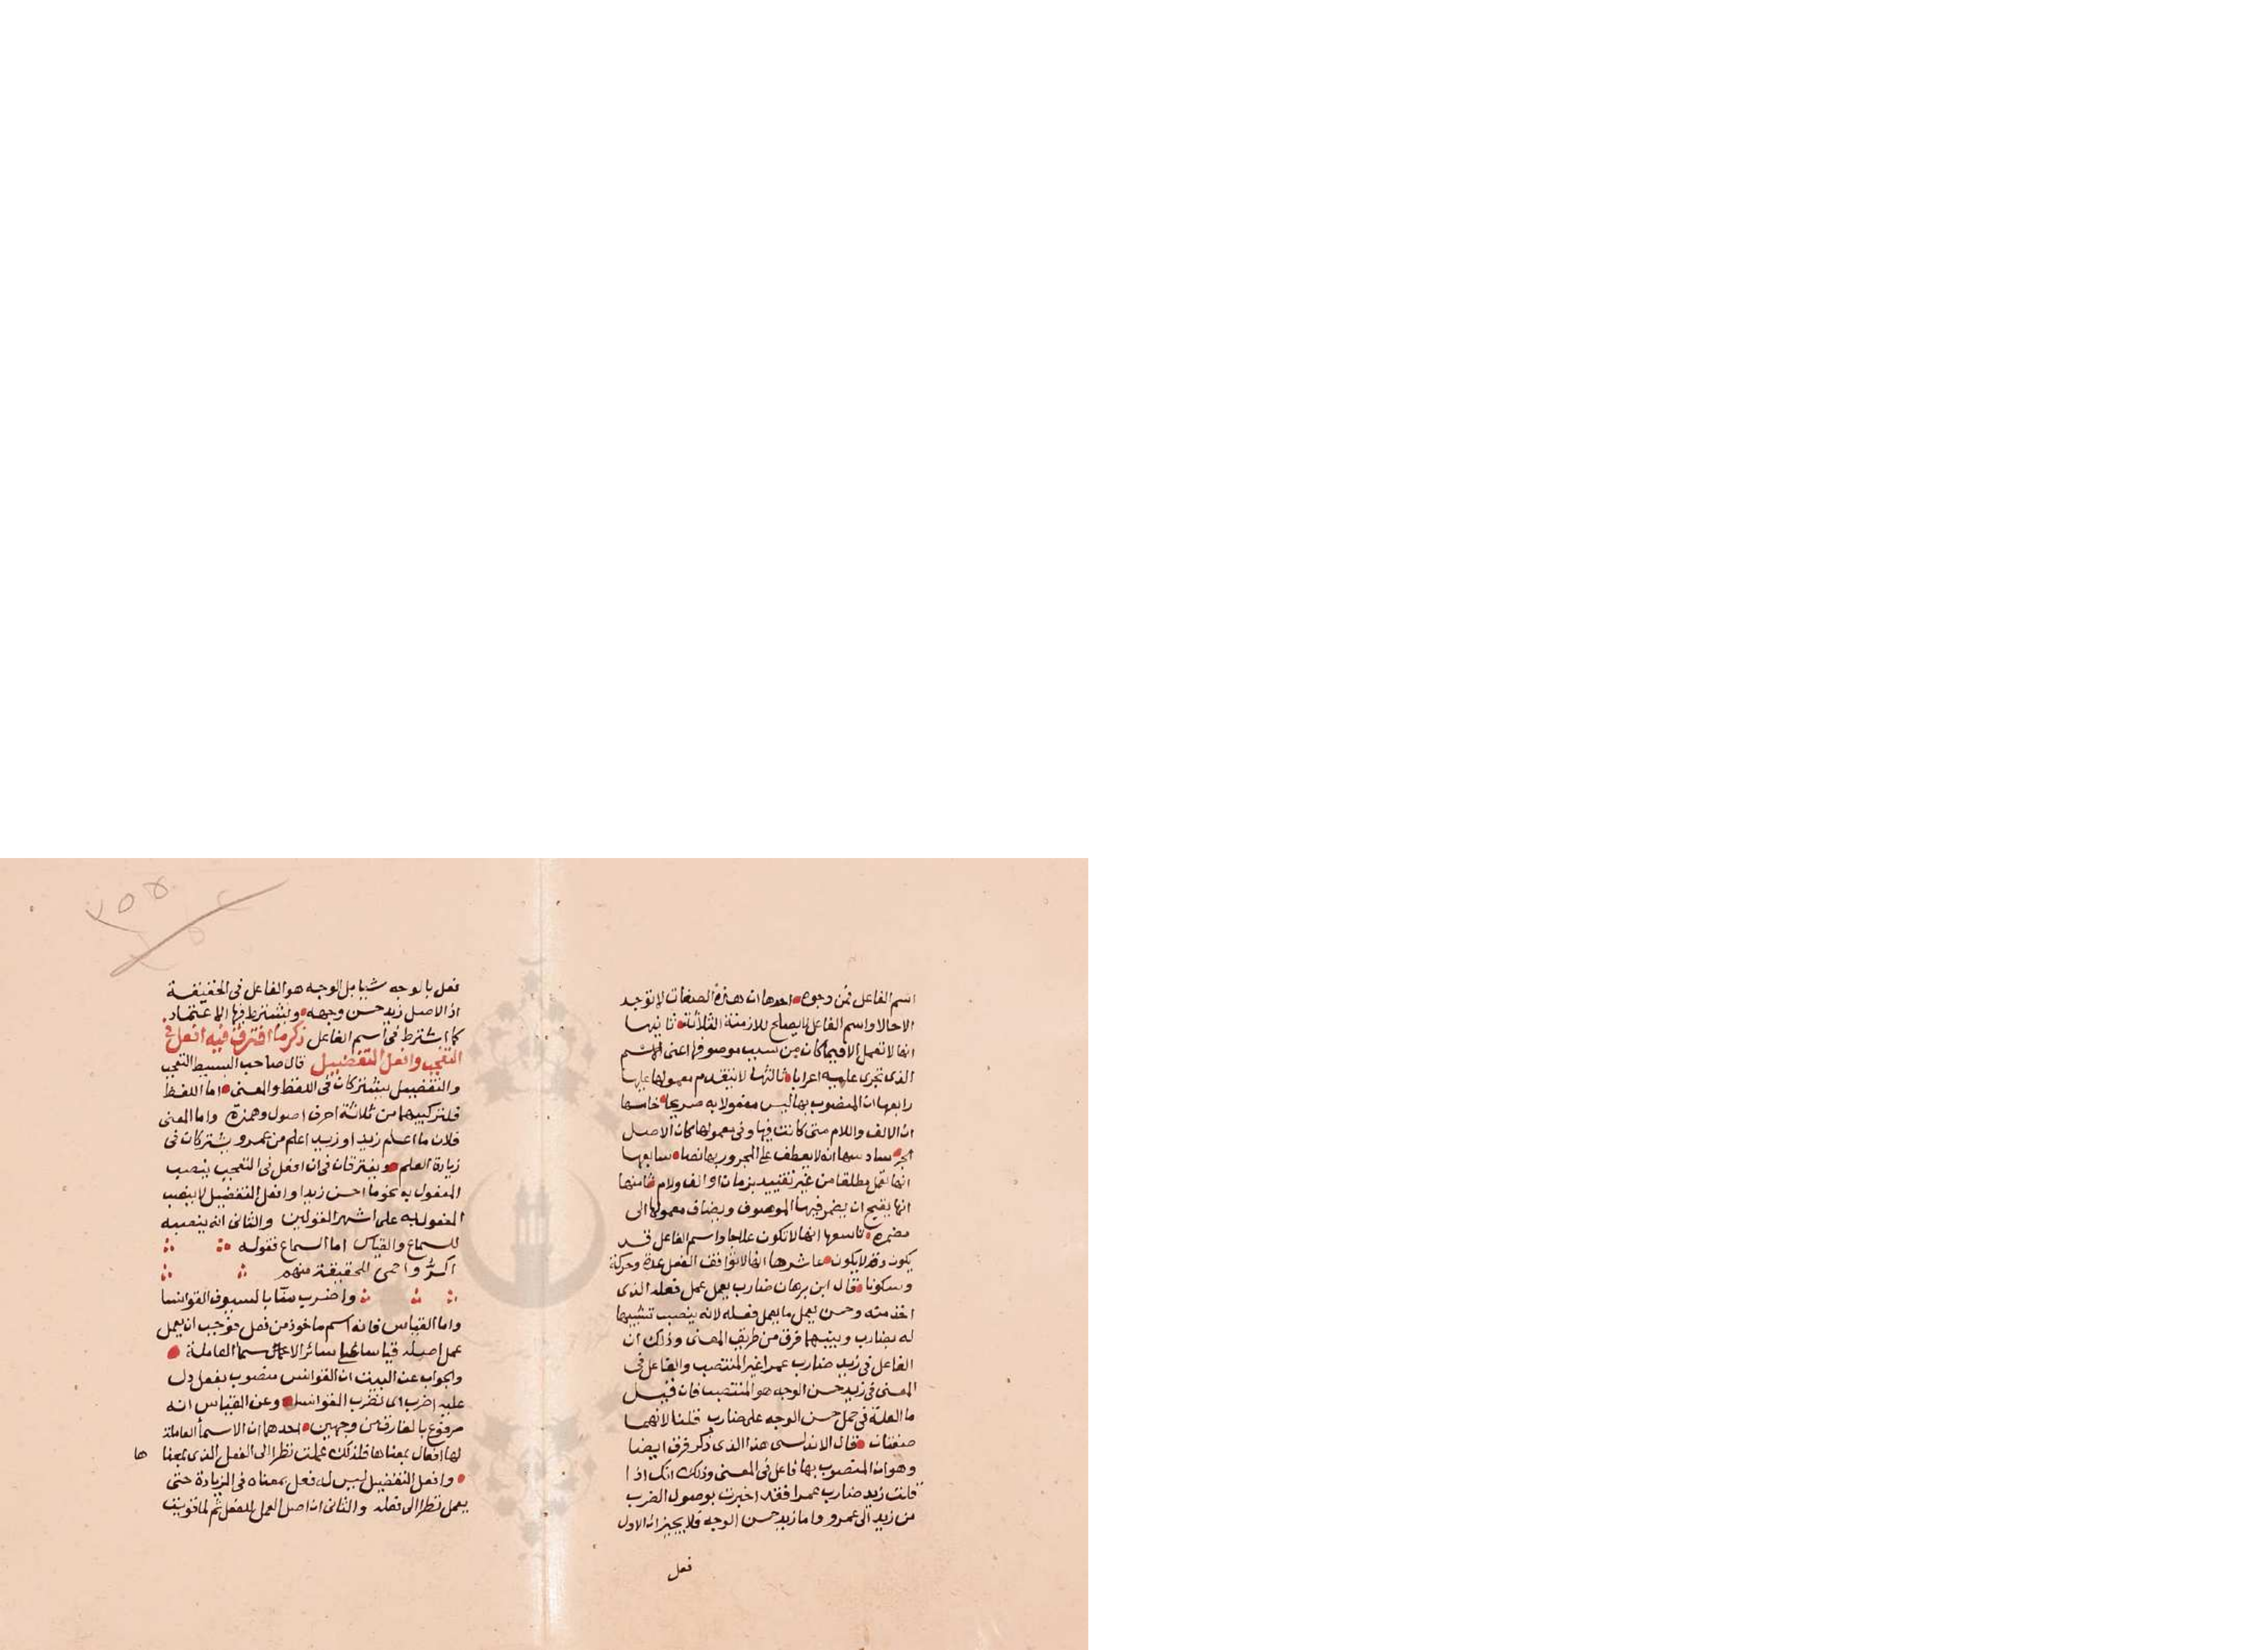 اسم الفاعل فمن وجوه احدها ان هذه الصفات لا توجد
الا حالا واسم الفاعل يصلح للازمنة الثلاثة ثانيها
انها لا تعمل الا فيما كان من سبب موصوفها اعنى الاسم
الذى تجرى عليه اعرابا ثالثها لا يتقدم معمولها عليها
رابعها ان المنصوب بها ليس مفعولا به صريحا خامسها
ان الالف واللام متى كانت فيها وفى معمولها كان الاصل
الجر سادسها انه لا يعطف على المجرور بها نصبا سابعها
انها تعمل مطلقا من غير تقييد بزمان او الف ولام ثامنها
انها يقبح ان يضمر فيها الموصوف ويضاف معمولها الى
مضمره تاسعها انها لا تكون علاجا واسم الفاعل قد
يكون وقد لا يكون عاشرها انها لا توافق الفعل عدة وحركة
وسكونا قال ابن برهان ضارب يعمل عمل فعله الذى
اخذ منه وحسن يعمل ما يعمل فعله لانه ينصب تشبيها
له بضارب وبينهما فرق من طريق المعنى وذلك ان
الفاعل فى زيد ضارب عمرا غير المنتصب والفاعل فى
المعنى فى زيد حسن الوجه هو المنتصب فان قيل
ما العلة فى حمل حسن الوجه على ضارب قلنا لانهما
صفتان قال الاندلسى هذا الذى ذكر فرق ايضا
وهو ان المنصوب بها فاعل فى المعنى وذلك انك اذا
قلت زيد ضارب عمرا فقد اخبرت بوصول الضرب
من زيد الى عمرو واما زيد حسن الوجه فلا يخبر ان الاول
فعل
٢٥٥
فعل بالوجه شيا بل الوجه هو الفاعل فى الحقيقة
اذ الاصل زيد حسن وجهه ويشترط فيها الاعتماد
كما اشترط فى اسم الفاعل ذكر ما افترق فيه افعل فى
التعجب وافعل التفضيل قال صاحب البسيط التعجب
والتفضيل يشتركان فى اللفظ والمعنى اما اللفظ
فلتركيبهما من ثلاثة احرف اصول وهمزة واما المعنى
فلان ما اعلم زيد او زيد اعلم من عمرو يشتركان فى
زيادة العلم ويفترقان فى ان افعل فى التعجب ينصب
المفعول به نحو ما احسن زيدا وافعل التفضيل لا ينصب
المفعول به على اشهر القولين والثانى انه ينصبه
للسماع والقياس اما السماع فقوله
اكر واحمى للحقيقة منهم
واضرب منا بالسيوف القوانسا
واما القياس فانه اسم ماخوذ من فعل فوجب ان يعمل
عمل اصله قياسا على سائر الاسما العاملة
والجواب عن البيت ان القوانس منصوب بفعل دل
عليه اضرب اى نضرب القوانسا وعن القياس انه
مرفوع بالفارق من وجهين احدهما ان الاسما العاملة
لها افعال بمعناها فلذلك عملت نظرا الى الفعل الذى بمعنا ها
وافعل التفضيل ليس له فعل بمعناه فى الزيادة حتى
يعمل نظرا الى فعله والثانى ان اصل العمل للفعل ثم لما قويت